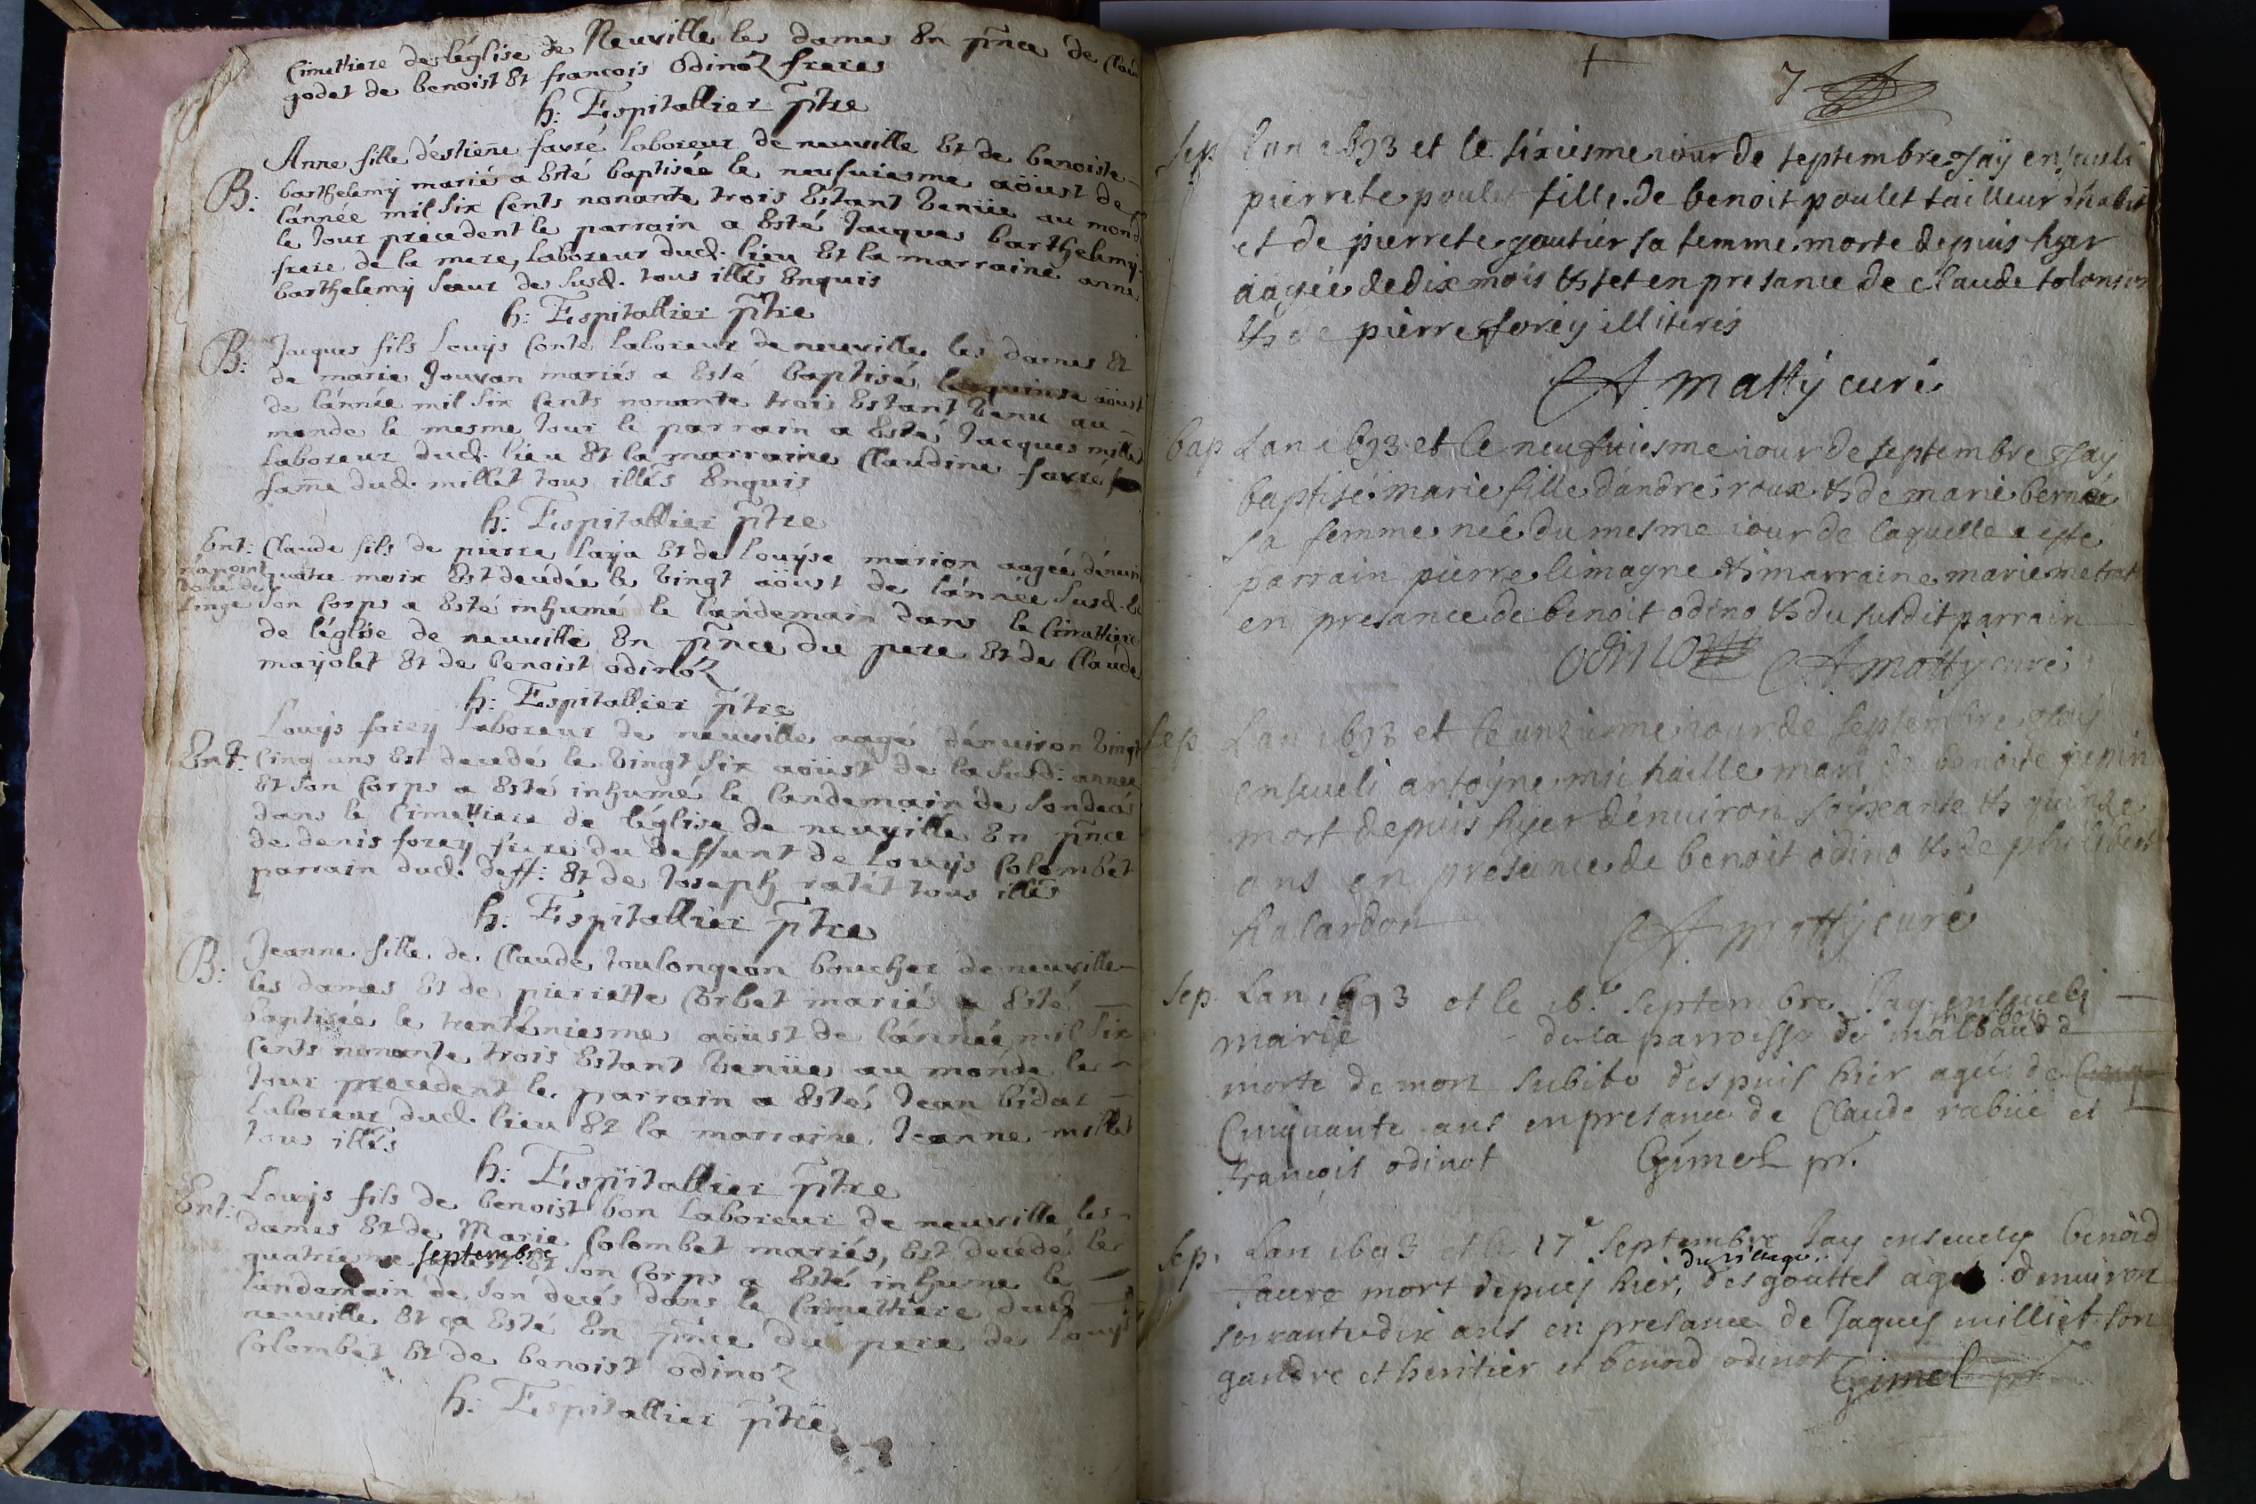 Cimettiere de léglise de Neuville les dames En pñce de Claude
godet de benoist Et françois Odinoz freres
h: Espitallier ptre
B:
Anne fille déstieñe favre laboreur de neuville Et de benoiste
barthelemy mariés a Esté baptisée le neufuiesme aoüst de
lánnée mil Six Cents nonante trois Estant Venüe au monde
le Jour precedent le parrain a Esté Jacques barthelemy
frere de la mere, laboreur dud. lieu Et la marraine anne
barthelemy Soeur de Susd. tous illés Enquis
h: Espitallier ptre
B:
Jacques fils Louys Conte laboreur de neuville les dames Et
de marie Jouvan mariés a Esté baptisé le quinse aoust
de lánnée mil Six Cents nonante trois Estant Venu au
monde le mesme Jour le parrain a Esté Jacques millet
laboreur dud. lieu Et la marraine Claudine favre
fañe dud. millet tous illés Enquis
h: Espitallier ptre
Ent: Claude fils de pierre laya Et de louyse marion aagée dénuiron
quatre moix Est decedée le Vingt aoüst de lánnée Susd. Et
Son Corps a Esté inhumé le lándemain dans le Cimettiere
de léglise de neuville En pñce du pere Et de Claude
mayolet Et de benoist odinóz
h: Espitallier ptre
Louys forey laboreur de neuville aagé dénuiron Vingt
Ent. Cinq ans Est decedé le Vingt Six aoüst de la Susd: annee
Et Son Corps a Esté inhumé le landemain de Son decé
dans le Cimettiere de léglise de neuville En pñce
de denis forey frere du deffunt de Louys Colombet
parrain dud. deff: Et de Joseph ratét tous illés
h: Espitallier ptre
B:
Jeanne fille de Claude toulongeon boucher de neuville
les dames Et de pierrette Corbet mariés a Esté
baptisée le trenténiesme aoüst de lánnée mil Six
Cents nonante trois Estant Venüe au monde le
Jour precedent le parrain a Esté Jean bidat
Laboreur dud. lieu Et la marraine Jeanne millet
tous illés
h: Espitallier ptre
Ent: Louys fils de benoist bon Laboreur de neuville les
dames Et de Marie Colombet mariés, Est decédé le
quatrieme septembre Et Son Corps a Esté inhume le
landemain de Son decés dans le Cimettiere dud.
neuville Et ça Esté En pñce du pere de Louys
Colombet Et de benoist odinoz
h: Espitallier ptre
7
Sep Lan 1693 et le sixiesme iour de septembre Jay enseueli
pierrete poulet fille de benoit poulet tailleur dhabit
et de pierrete gautier sa femme morte depuis hyer
aagée de dix mois & set en presance de Claude tolonion
& de pierre forey illiteres
A. matty curé
bap Lan 1693 et le neufuiesme iour de septembre Jay
baptisé marie fille dándré roux & de marie
sa femme neé du mesme iour de laquelle a este
parrain pierre limagne & marraine marie metrat
en presance de benoit odino & du susdit parrain
odino A matty curé
Sep Lan 1693 et le unziesme iour de septembre Jay
enseueli antoyne michaille mari de benoite pepin
mort depuis hyer dénuiron soixante & quinze
ans en presance de benoit odino & de philibert
halardon
A. matty curé
Sep. Lan 1693 et le 16.e septembre Jay enseueli
marie de la parroisse de
morte de mort subite despuis hier agée de
Cinquante ans en presance de Claude rabüé et
françois odinot Gimel pr.
Sep. Lan 1693 et le 17e septembre Jay enseuely benoid
faure mort depuis hier, du village des gouttes agé denuiron
soixante dix ans en presance de Jaques milliet son
gandre et heritier et benoid odinot Gimel pr